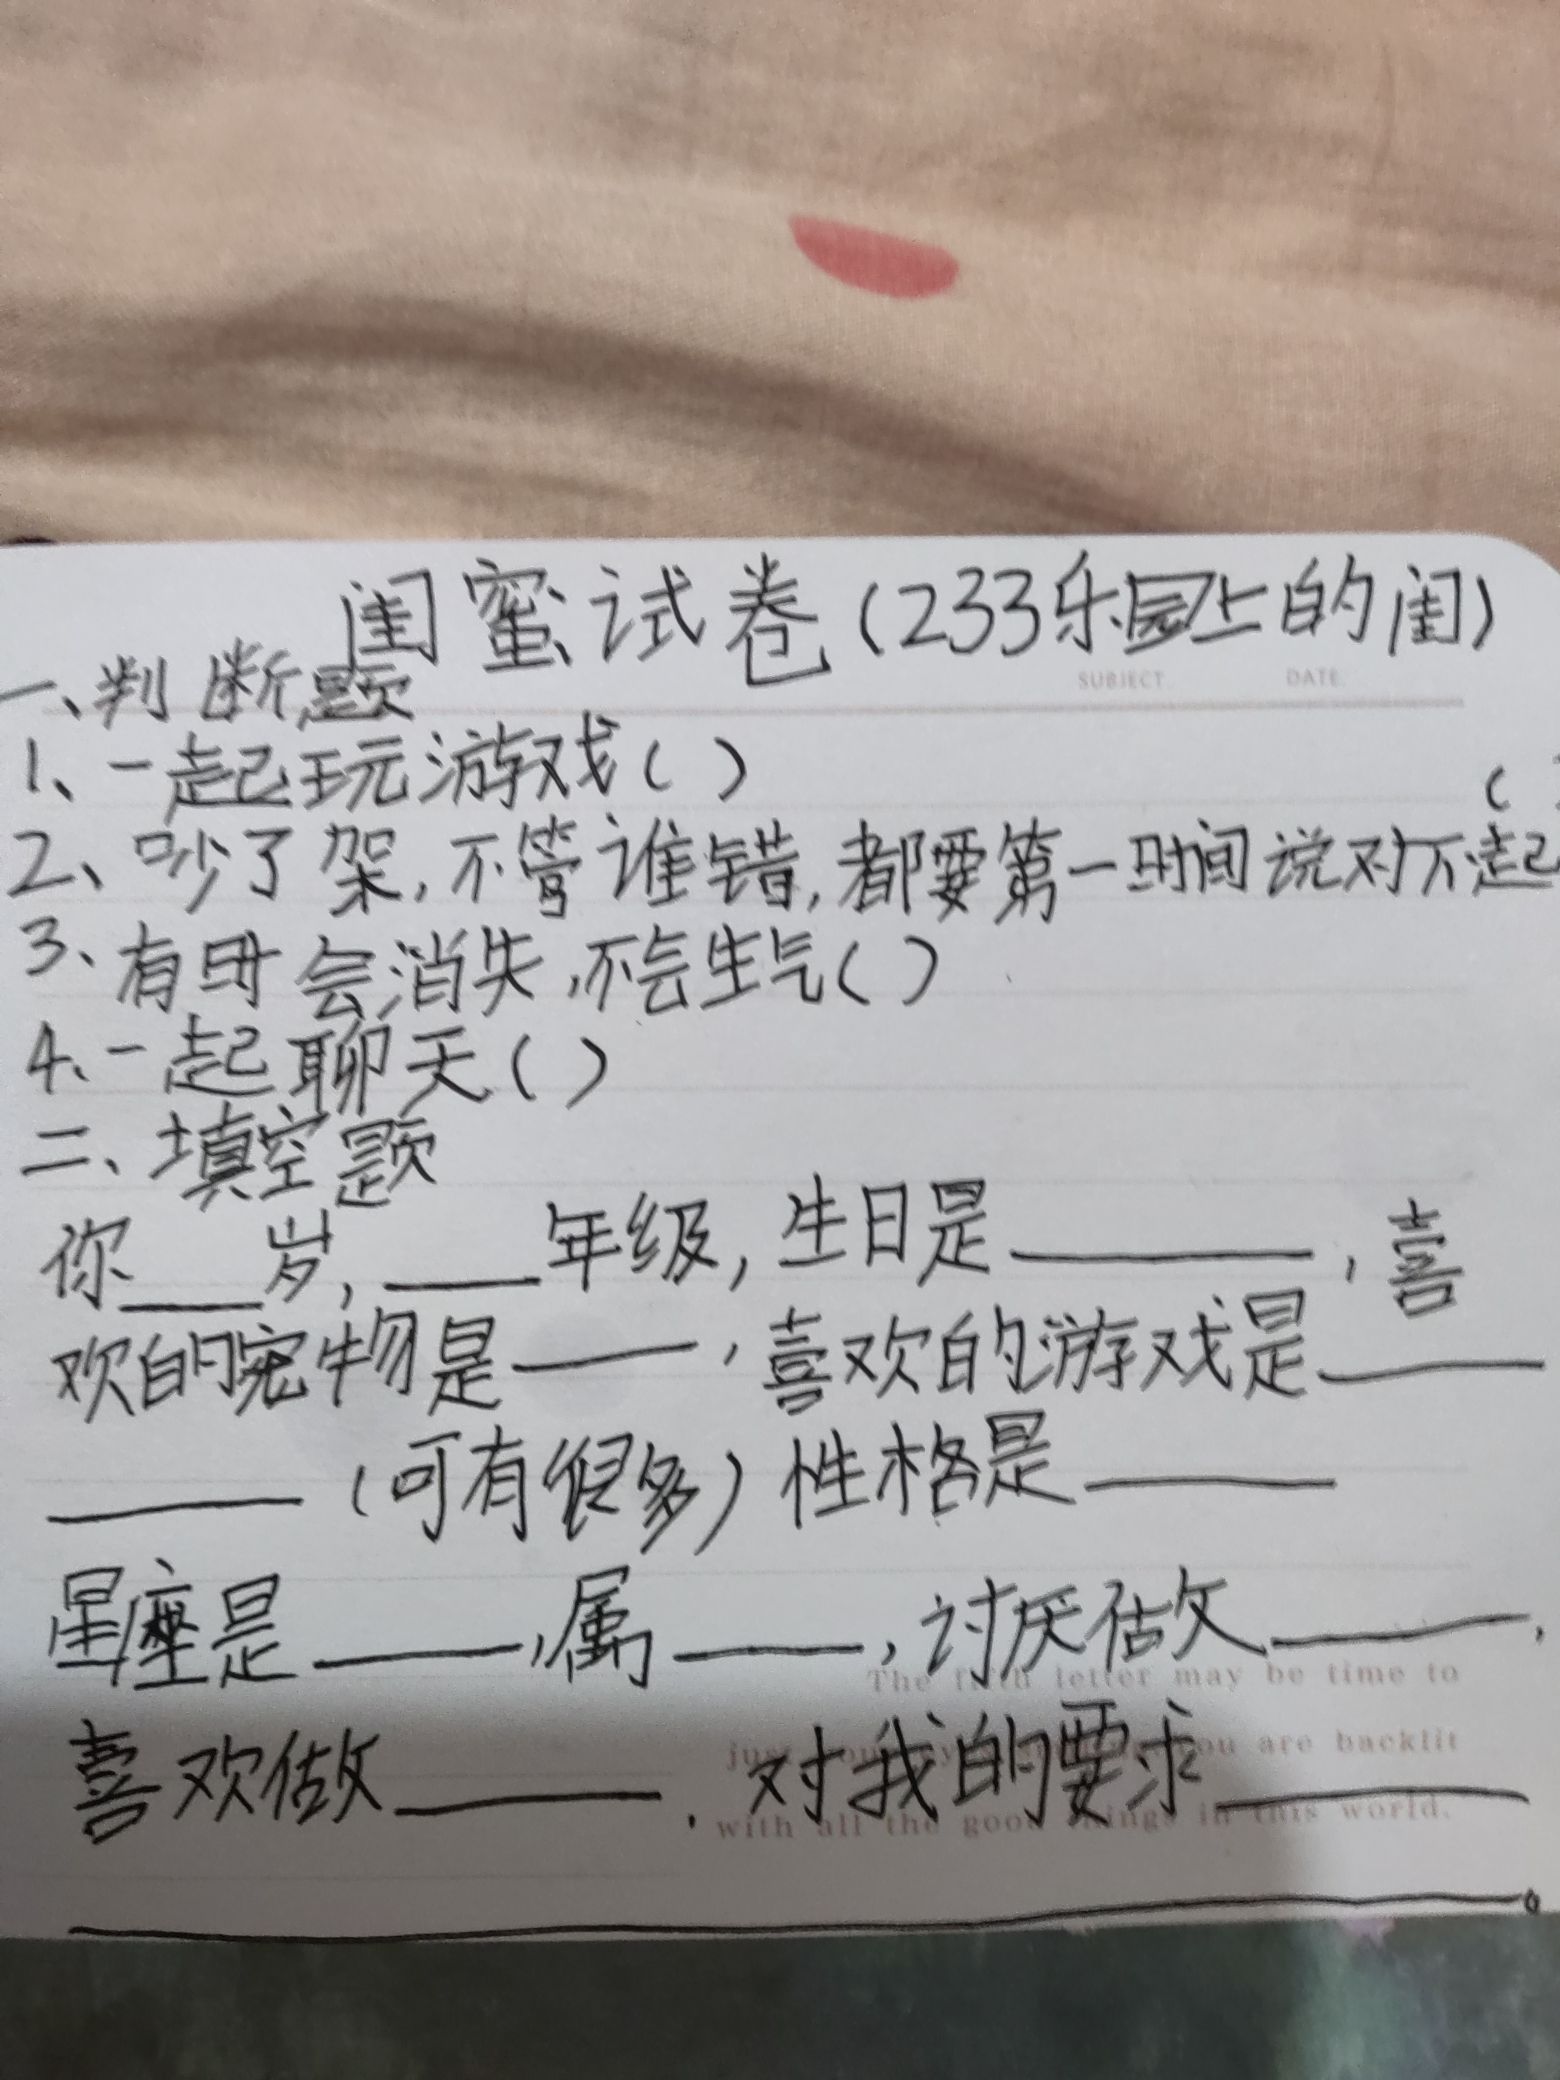 闺蜜试卷(233乐园上的闺)
SUBJECT. DATE.
一、判断题
1、一起玩游戏( )
( )
2、吵了架,不管谁错,都要第一时间说对不起
3、有时会消失,不会生气( )
4、一起聊天( )
二、填空题
你___岁,____年级,生日是________,喜
欢的宠物是_____,喜欢的游戏是______
_______(可有很多)性格是_______
星座是______,属_____,讨厌做_______,
喜欢做_______.对我的要求________
________________________________________。
The letter may be time to
you are backlit
with all the good things in this world.